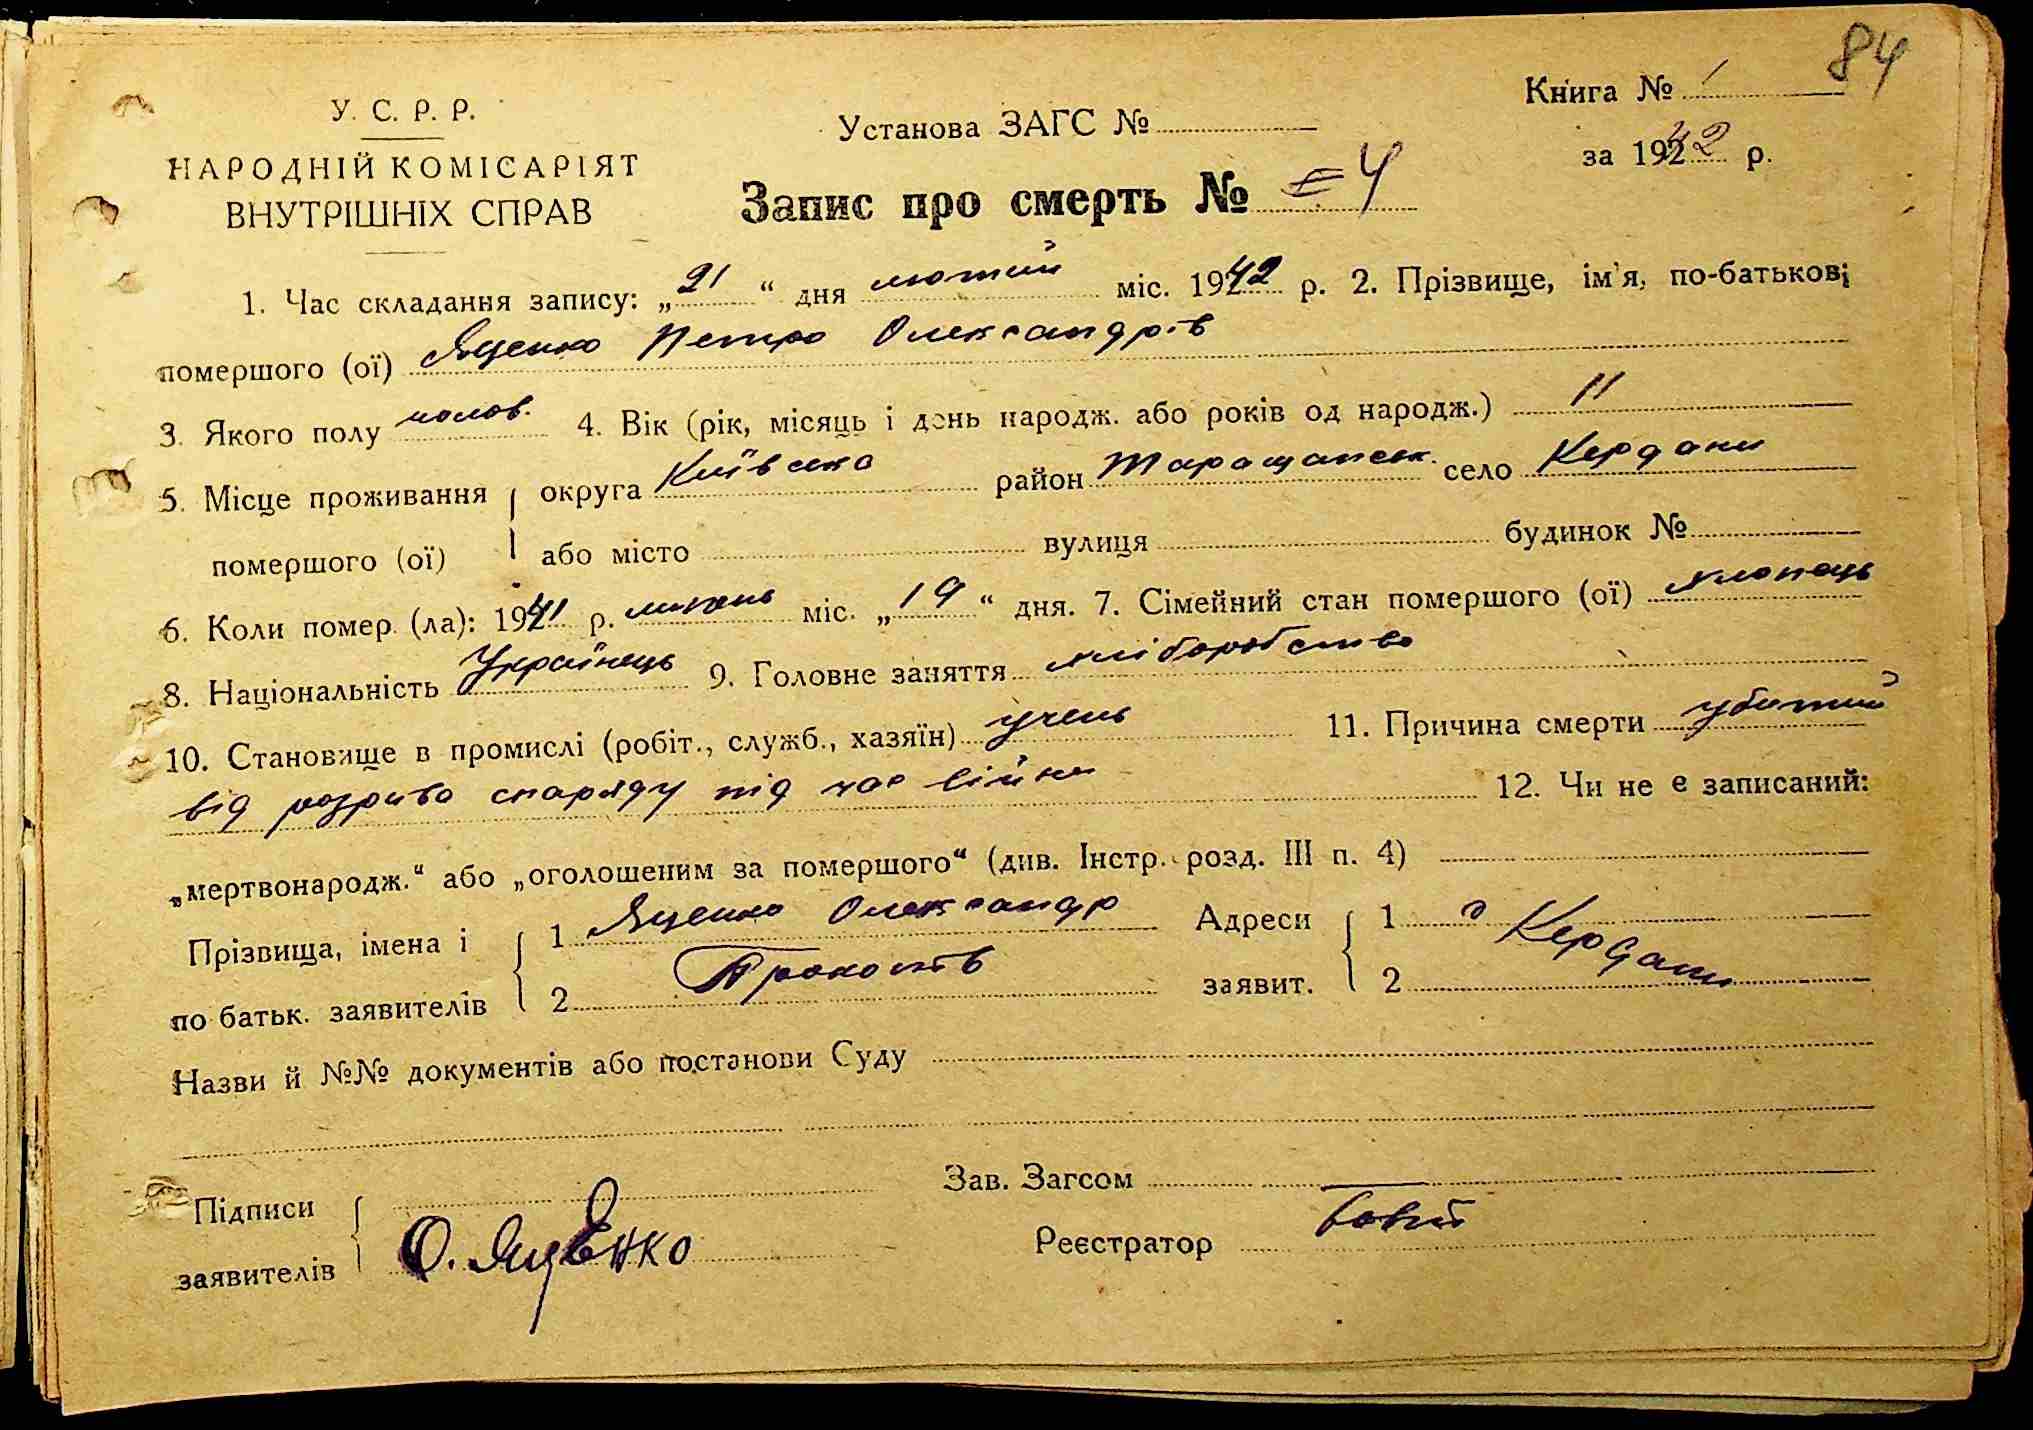 84
У. С. Р. Р.
НАРОДНІЙ КОМІСАРІЯТ
ВНУТРІШНІХ СПРАВ
Установа ЗАГС №
Книга № 1
за 1942 р.
Запис про смерть № =4
1. Час складання запису: „21“ дня лютий міс. 1942 р. 2. Прізвище, ім'я, по-батькові
помершого (ої) Яценко Петро Олександрів
3. Якого полу чолов. 4. Вік (рік, місяць і день народж. або років од народж.) 11
5. Місце проживання округа Київська район Таращанськ. село Кердани
помершого (ої) або місто вулиця будинок №
6. Коли помер (ла): 1941 р. липень міс. „19“ дня. 7. Сімейний стан помершого (ої) хлопець
8. Національність Українець 9. Головне заняття хліборобство
10. Становище в промислі (робіт., служб., хазяїн) учень 11. Причина смерти убитий
від розрива снаряду під час війни 12. Чи не є записаний:
„мертвонародж.“ або „оголошеним за помершого“ (див. Інстр. розд. III п. 4)
Прізвища, імена і 1 Яценко Олександр Адреси 1 с Кердани
по батьк. заявителів 2 Прокопів заявит. 2
Назви й №№ документів або постанови Суду
Підписи Зав. Загсом
заявителів О. Яценко Реєстратор